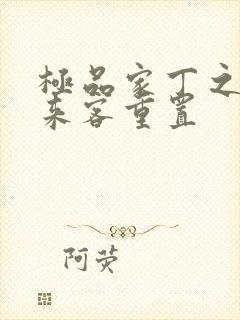 極品家丁之
来客重置
阿荧